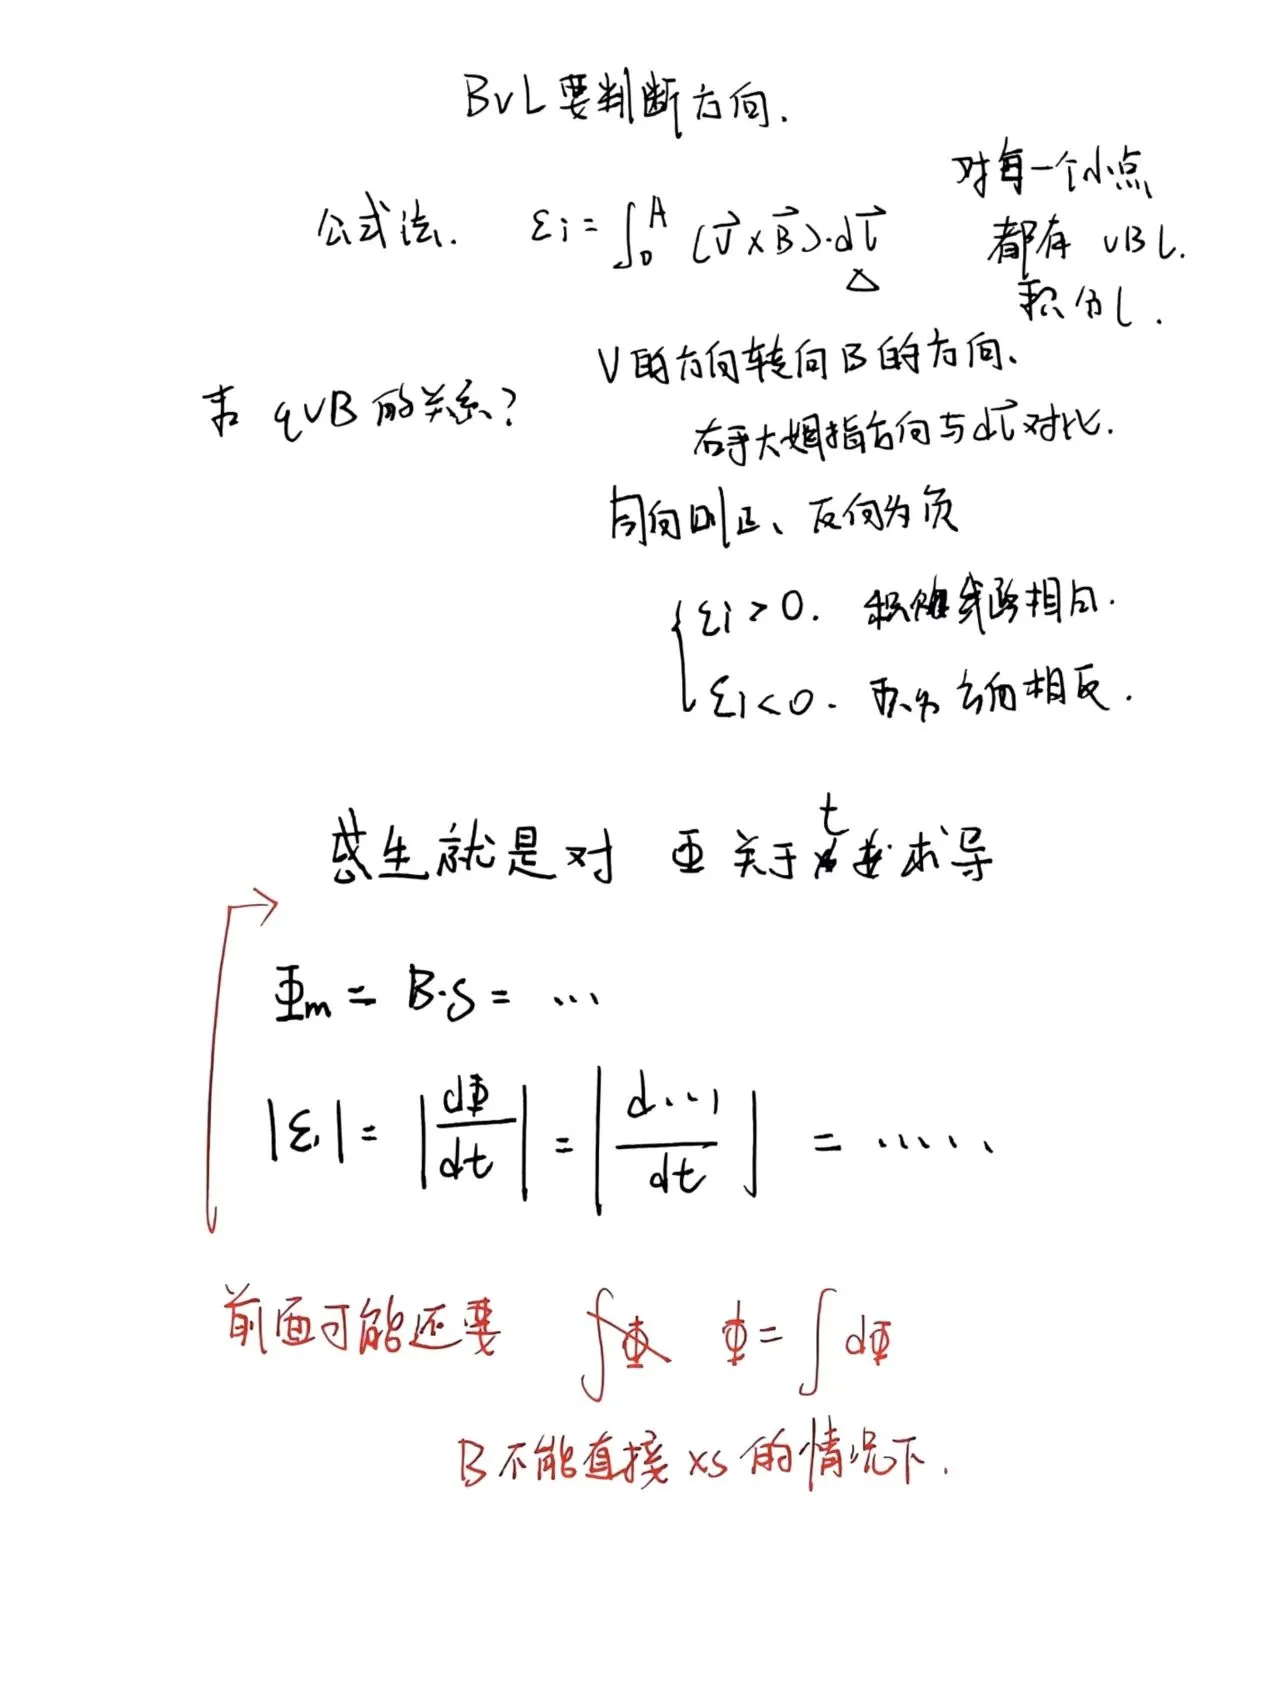 BvL要判断方向.
对每一个小点
都有 vBL.
积分L.
公式法. εi = ∫₀ᴬ (v⃗×B⃗)·dl⃗
△
V的方向转向B的方向、
求 qvB 的关系?
右手大姆指方向与dl⃗对比.
同向则正、反向为负
εi > 0. 积分线路相同.
εi < 0. 积分方向相反.
t
感生就是对 Φ 关于 求导
Φm = B·S = ...
|εi| = |dΦ/dt| = |d.../dt| = .....
前面可能还要 ∫Φ Φ = ∫dΦ
B不能直接 xs 的情况下.